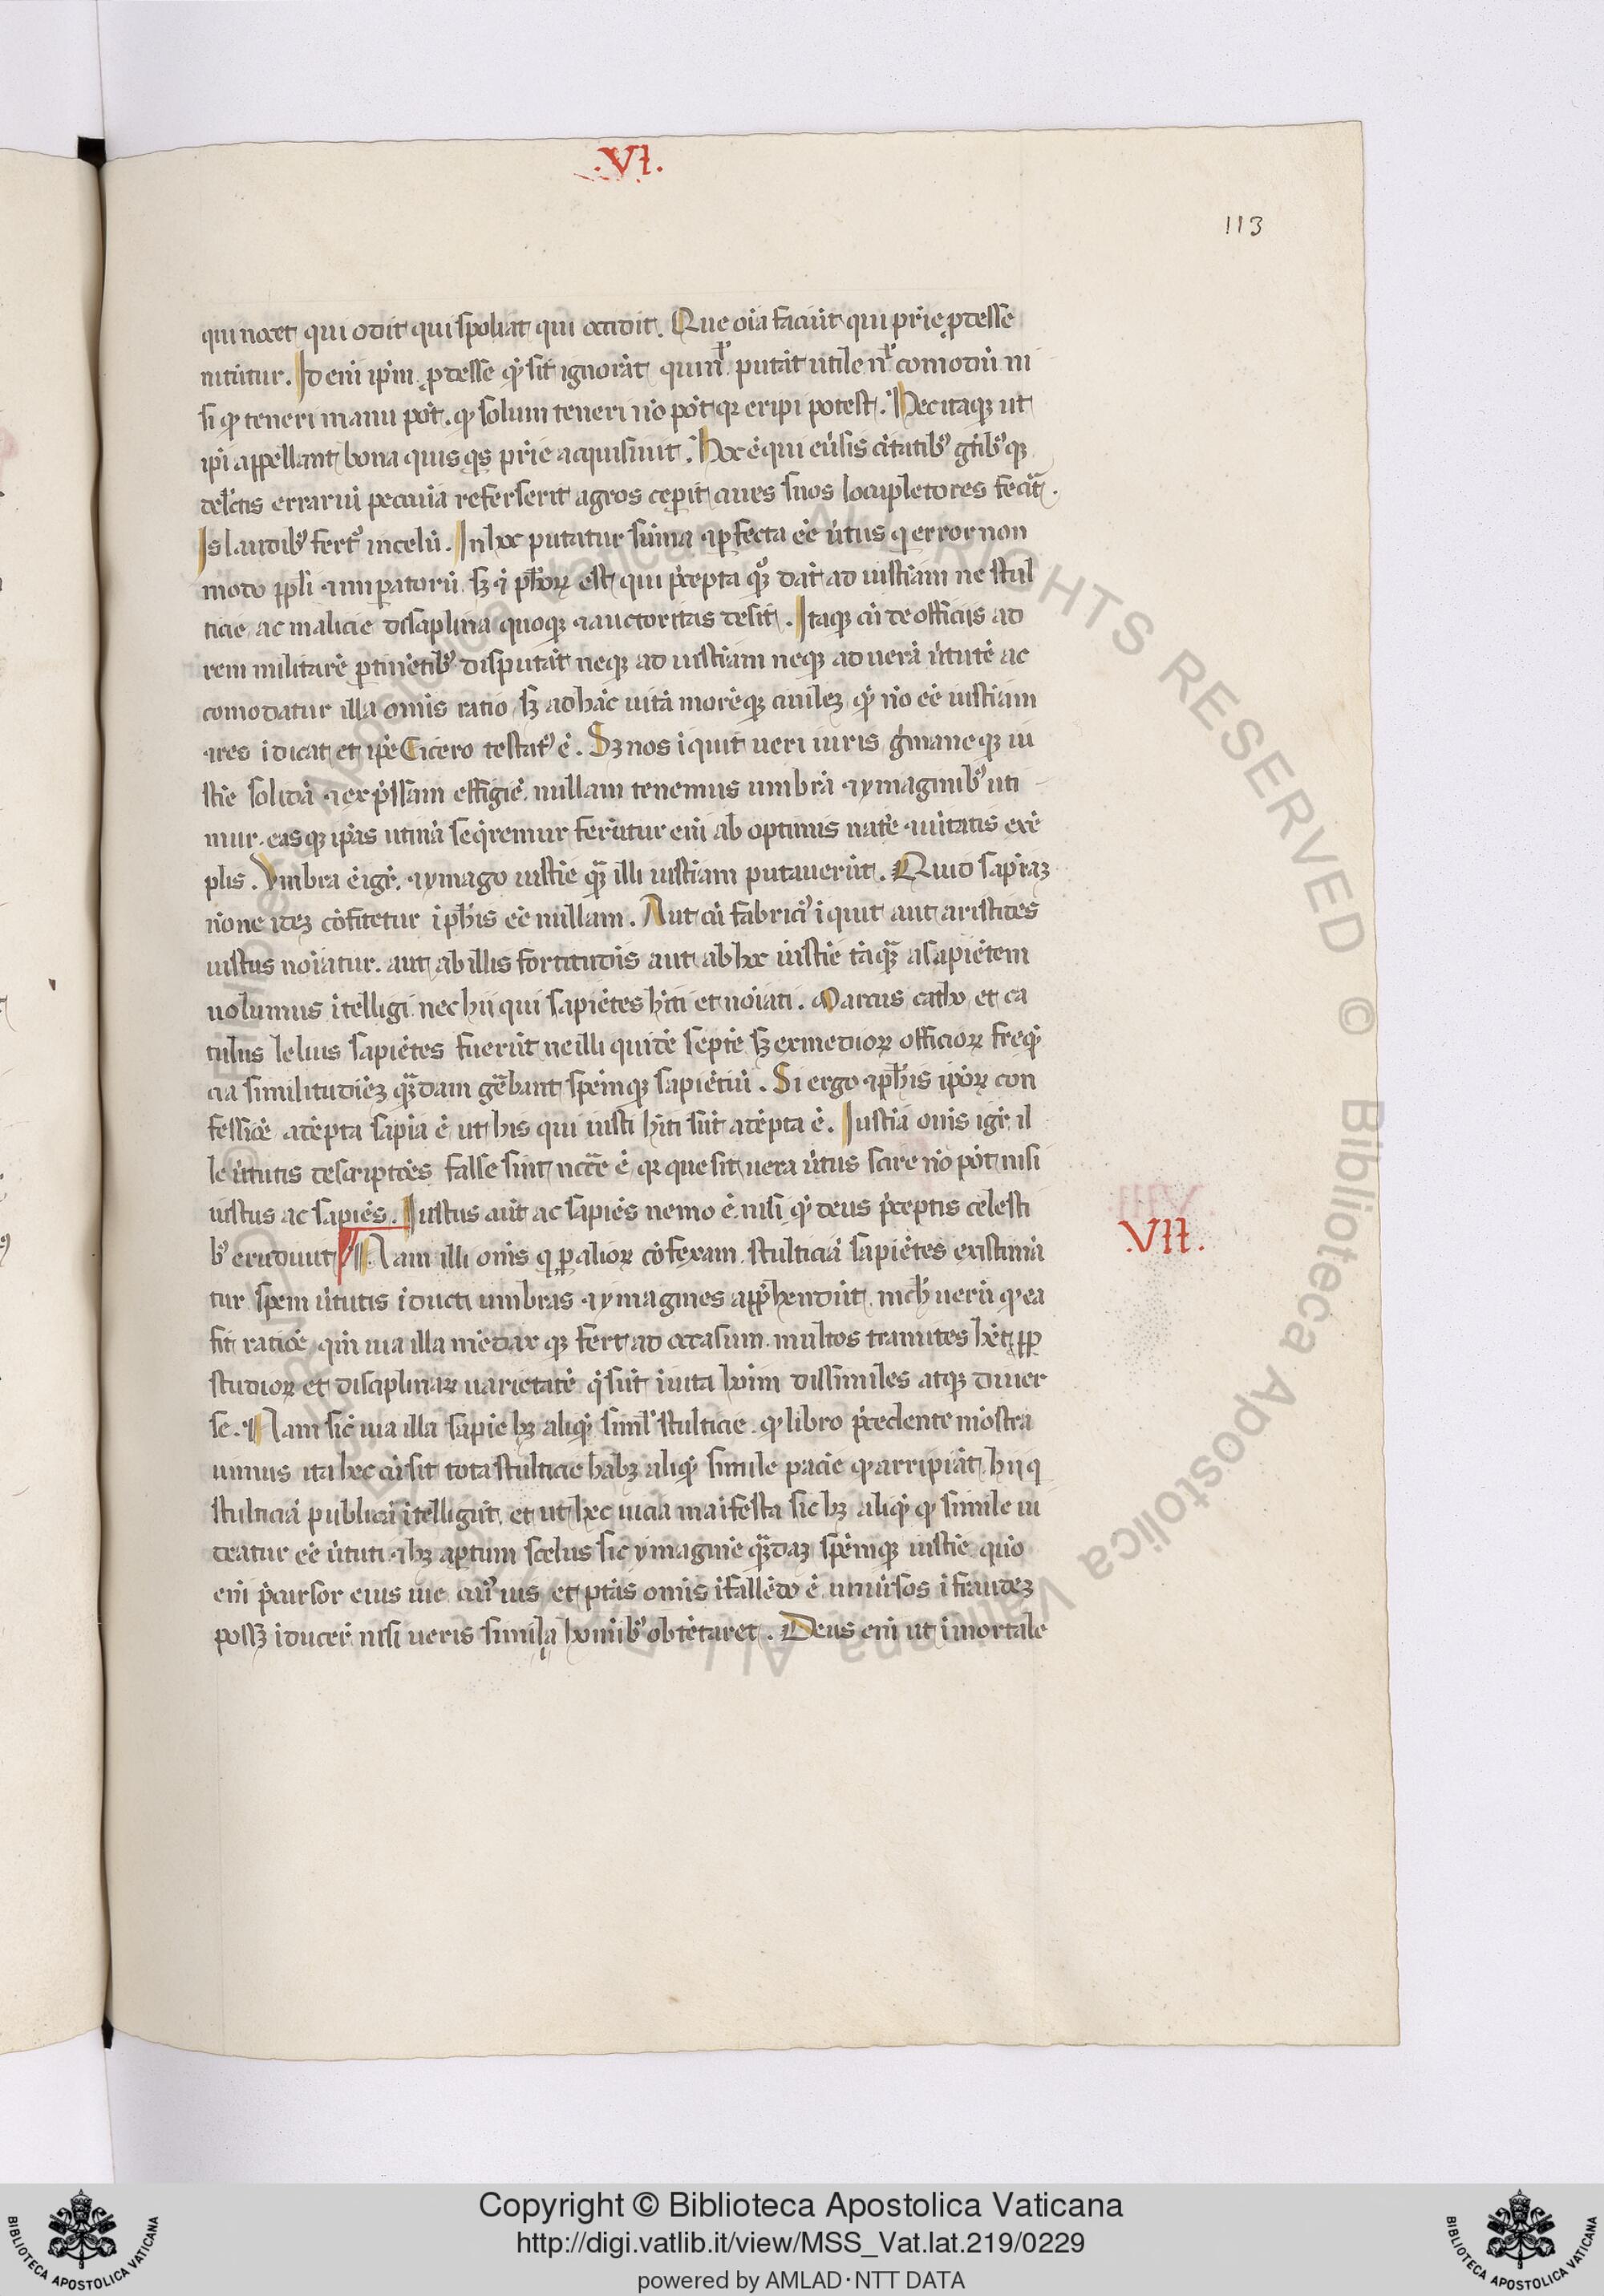 .VI.
113
qui nocet qui odit qui spoliat qui occidit. Que oia faciūt qui prie ꝓdesse
nitūtur. Id eni ipm ꝓdesse qđ sit ignorāt qui nͥ putāt utile nͥ comodū ni
si qđ teneri manu pōt. qđ solum teneri nō pōt qꝛ eripi potest. Hec itaqꝫ ut
ipi appellant bona quis qs prie acquisiuit. Hoc ē qui eūsis ciūtatibꝰ gētibꝰqꝫ
delētis errarui pecunia referserit agros ceperit ciues suos locupletores fecit.
Is laudibꝰ fertꝰ in celū. In hoc putatur sūma ⁊ ꝑfecta eē ūtus q error non
modo ppli ⁊ imꝑatorū sꝫ ⁊ phōꝝ est qui p̄cepta quoqꝫ dāt ad iustitiam ne stul
ticie ac malicie disciplina quoqꝫ ⁊ auctoritas desit. Itaqꝫ cū de officiis ad
rem militarē ꝑtinētibꝰ disputāt neqꝫ ad iustitiam neqꝫ ad uerā ūtutē ac
comodatur illa omīs ratio sꝫ ad hāc uitā morēqꝫ ciuileꝫ qđ nō eē iustitiam
⁊ res idicat et ipe Cicero testatꝰ ē. Sꝫ nos iquit ueri iuris gͥmaneqꝫ iu
stīe solidā ⁊ exp̄ssam effigiē nullam tenemus umbrā ⁊ ymaginibꝰ uti
mur. easqꝫ ipās utinā seq̄remur ferūtur eni ab optimis natē ⁊ ūitatis exē
plis. Vmbra ē igr̄ ⁊ ymago iustīe qꝫ illi iustitiam putauerūt. Quid sapīaꝫ
nōne ideꝫ cōfitetur i phīs eē nullam. Aut cū fabriciꝰ iquit aut aristides
iustus noīatur. aut ab illis fortitudīs aut ab hoc iustīe tāqꝫ a sapiētem
uolumus itelligi nec hii qui sapiētes hīti et noīati. Marcus catho et ca
tulus lelius sapiētes fuerūt ne illi quidē septē sꝫ ex medioꝝ officioꝝ freq̄
cia similitudīeꝫ qꝫdam gēbant spēmqꝫ sapiētiū. Si ergo ⁊ phīs ipōꝝ con
fessiōe adēpta sapīa ē ut his qui iusti hīti sūt adēpta ē. Iustiā om̄s igr̄ il
le ūtutis descriptōes false sint nccē ē qꝛ que sit uera ūtus scire nō pōt nisi
iustus ac sapiēs. Iustus aūt ac sapiēs nemo ē nisi qđ deus p̄ceptis celesti
bꝰ erudiuit. Nam illi om̄s q ꝑ alioꝝ cōfexam stulticiā sapiētes existimā
tur spem ūtutis iducti umbras ⁊ ymagines app̄hendūt. nich̄ uerū qđ ea
fit ratiōe qm̄ uia illa mēdax qꝫ fert ad occasum. multos tramites hēt ꝓp
studioꝝ et disciplinaꝝ uarietatē q̄ sūt i uita hoīm dissimiles atqꝫ diuer
se. Nam sic uia illa sapīe hꝫ aliqđ simīl stulticie. qđ libro p̄cedente mōstra
uimus ita hec cū sit tota stulticie habꝫ aliqđ simile pacīe qđ arripiāt hii q
stulticiā publicā itelligūt. et ut hec uicia maifesta sic hꝫ aliqđ qđ simile ui
deatur eē ūtuti ⁊ hꝫ aꝑtum scelus sic ymaginē qꝫdaꝫ spēmqꝫ iustīe quō
eni p̄cursor eius uie cuiꝰ uis et ptās omīs i fallēdo ē uniūsos i fraudeꝫ
possꝫ iducer̄ nisi ueris similia homībꝰ obtētaret. Deus eni ut imortale
.VII.
Copyright © Biblioteca Apostolica Vaticana
http://digi.vatlib.it/view/MSS_Vat.lat.219/0229
powered by AMLAD · NTT DATA
BIBLIOTECA APOSTOLICA VATICANA
BIBLIOTECA APOSTOLICA VATICANA